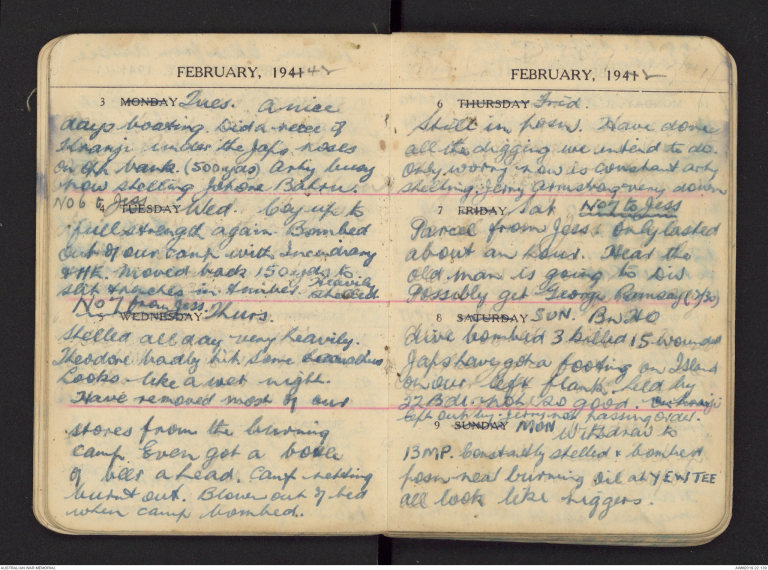 FEBRUARY, 1941 42
3 MONDAY Tues. A nice
days boating. Did a recce of
Kranji under the Japs noses
on opp bank. (500 yds) Arty busy
now shelling Johore Bahru.
NO 6 to Jess
4 TUESDAY Wed. Coy up to
full strength again. Bombed
out of our camp with Incendiary
& HE. Moved back 150 yds to
slit trenches in timber. Heavily
shelled
No 7 from Jess.
5 WEDNESDAY Thurs.
Shelled all day very heavily.
Theodore badly hit some
Looks like a wet night.
Have removed most of our
stores from the burning
camp. Even got a bottle
of beer a head. Camp
burnt out. Blown out of bed
when camp bombed.
FEBRUARY, 1941 2
6 THURSDAY Frid.
Still in posn. Have done
all the digging we intend to do.
Only worry now is constant arty
shelling. Jerry Armstrong very down
7 FRIDAY Sat No 7 to Jess
Parcel from Jess & only lasted
about an hour. Hear the
old man is going to Div
Possibly get George Ramsay (2/30)
8 SATURDAY SUN. Bn HQ
dive bombed 3 killed 15 wounded
Japs have got a footing on Island
on our left flank. Held by
22 Bde. not so good. Kranji
left out by. Jerry not passing order.
9 SUNDAY MON Withdraw to
13 MP. Constantly shelled & bombed
posn near burning oil at YEW TEE
all look like niggers.
AUSTRALIAN WAR MEMORIAL